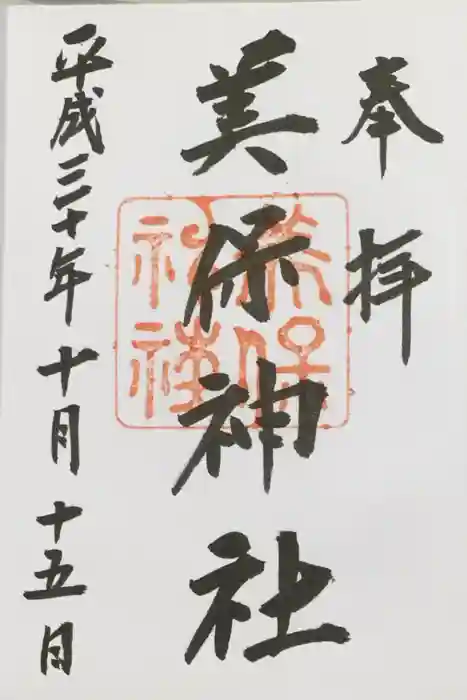 奉拝
美保神社
平成三十年十月十五日
美保神社